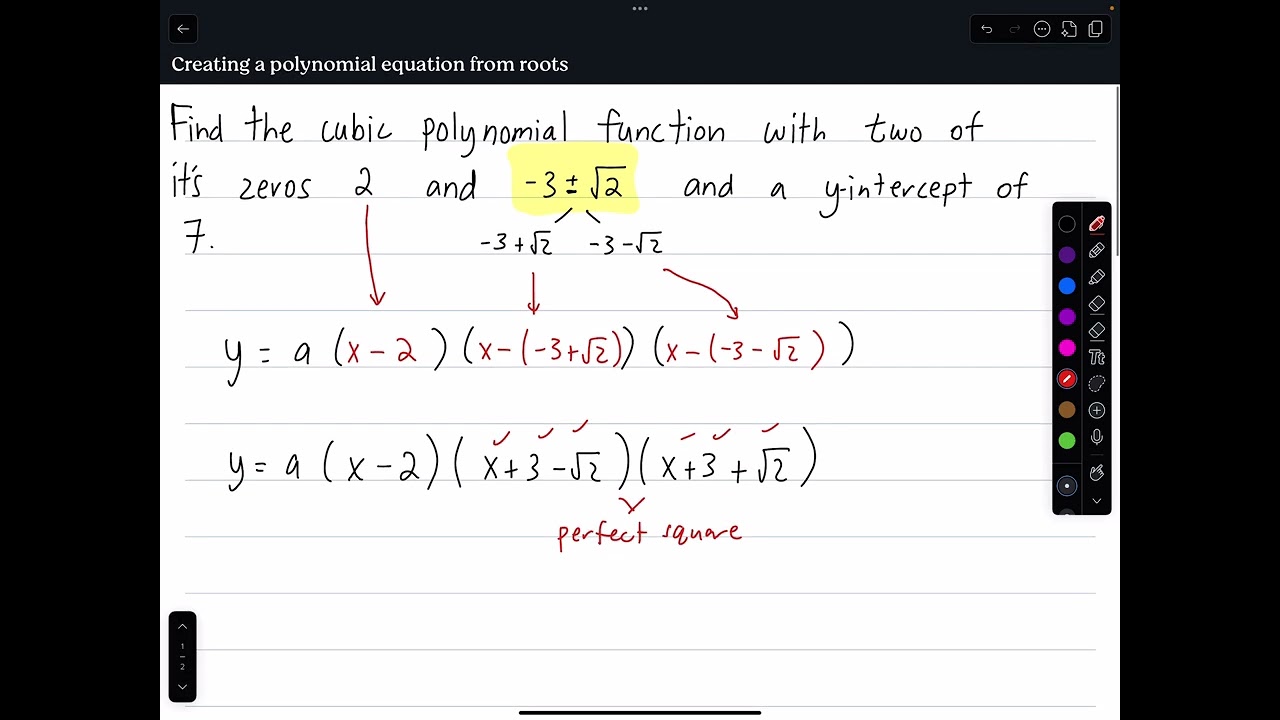 Creating a polynomial equation from roots
Find the cubic polynomial function with two of
it's zeros 2 and -3 ± √2 and a y-intercept of
7.
-3+√2 -3-√2
y = a (x-2) (x-(-3+√2)) (x-(-3-√2))
y = a (x-2)(x+3-√2)(x+3+√2)
perfect square
Tt
1
2